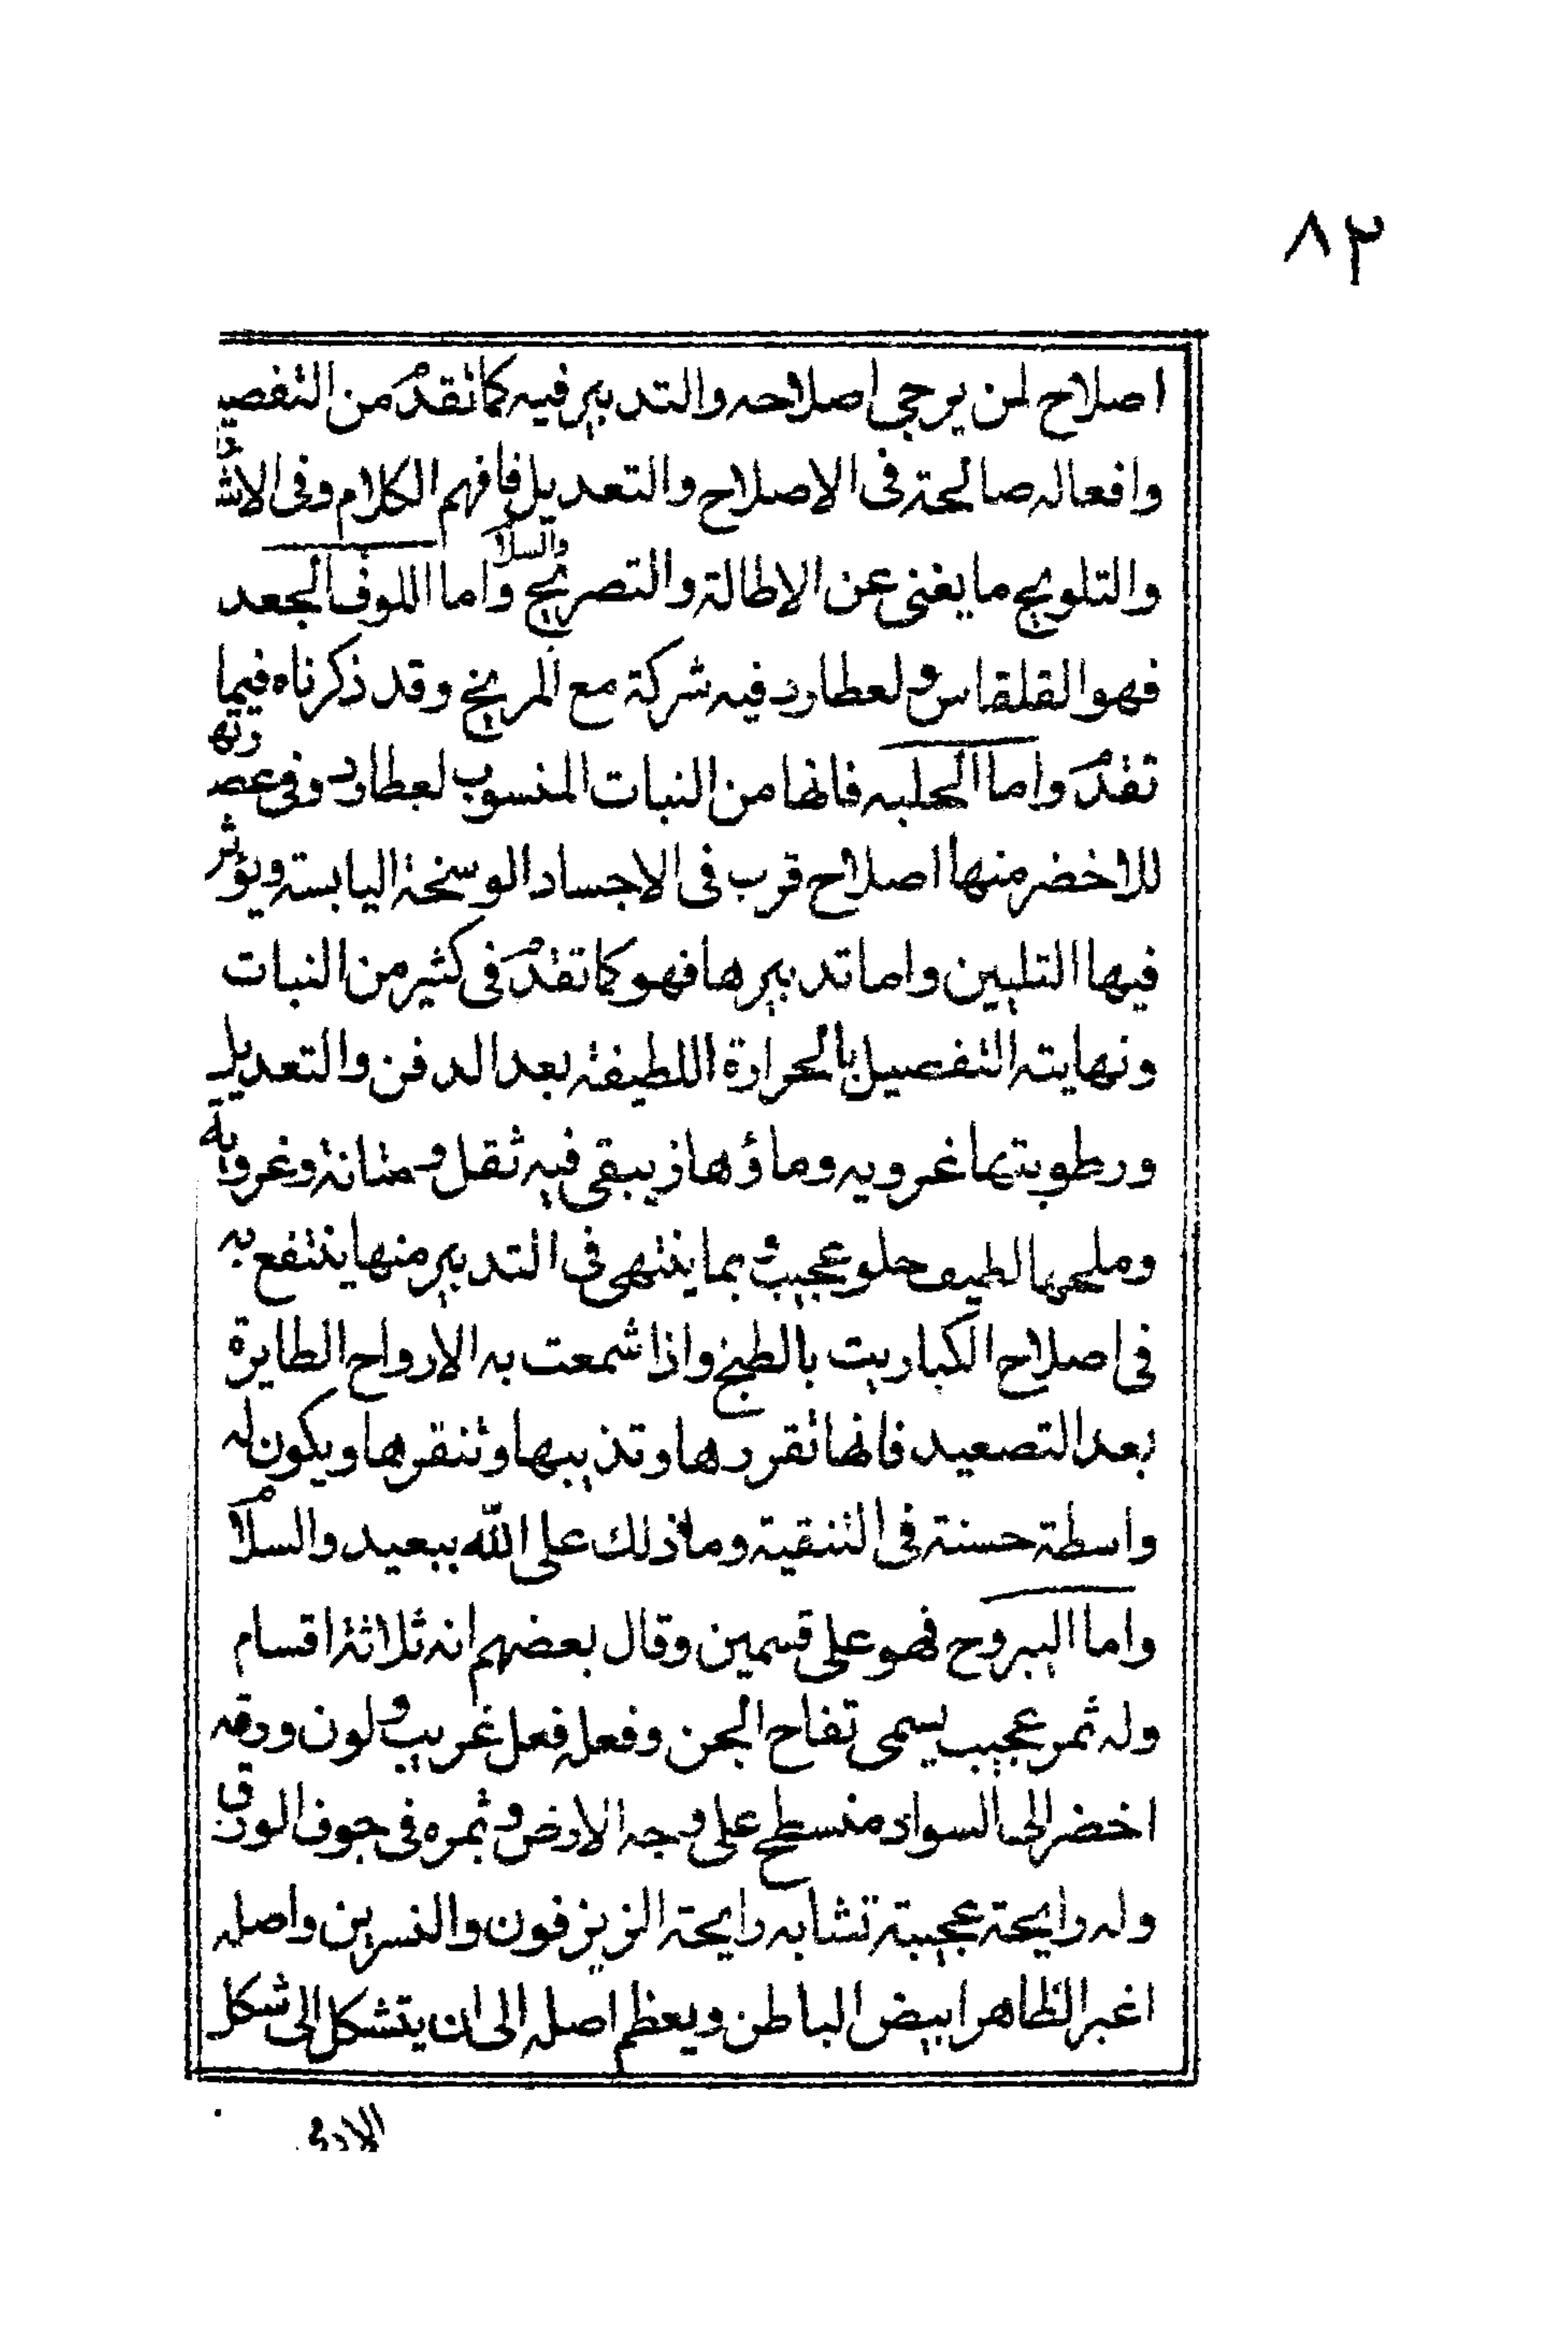 ٨٢
اصلاح لمن يرجى اصلاحه والتدبير فيه كما تقدم من التفصيـ
وافعاله صالحة فى الاصلاح والتعديل فافهم الكلام وفى الاشـ
والتلويح ما يغنى عن الاطالة والتصريح والسلام واما اللوف الجعد
فهو القلقاس ولعطارد فيه شركة مع المريخ وقد ذكرناه فيما
تقدم واما الحلبه فانها من النبات المنسوب لعطارد وفى عصارته
للاخضر منها اصلاح قرب فى الاجساد الوسخة اليابسة ويؤثر
فيها التليين واما تدبيرها فهو كما تقدم فى كثير من النبات
ونهايته التفصيل بالحرارة اللطيفة بعد الدفن والتعديل
ورطوبتها غرويه وماؤها يبقى فيه ثقل ومتانة وغروية
وملحها لطيف حلو عجيب وبما ينتهى فى التدبير منها ينتفع به
فى اصلاح الكباريت بالطبخ واذا شمعت به الارواح الطايرة
بعد التصعيد فانها تقررها وتذيبها وتنقرها ويكون له
واسطة حسنة فى التنقية وما ذلك على الله ببعيد والسلام
واما اليبروح فهو على قسمين وقال بعضهم انه ثلاثة اقسام
وله ثمر عجيب يسمى تفاح الجن وفعله فعل غريب ولون ورقه
اخضر الى السواد منسطح على وجه الارض وثمره فى جوف الورق
وله رايحة عجيبة تشابه رايحة الزيزفون والنسرين واصله
اغبر الظاهر ابيض الباطن ويعظم اصله الى ان يتشكل الى شكل